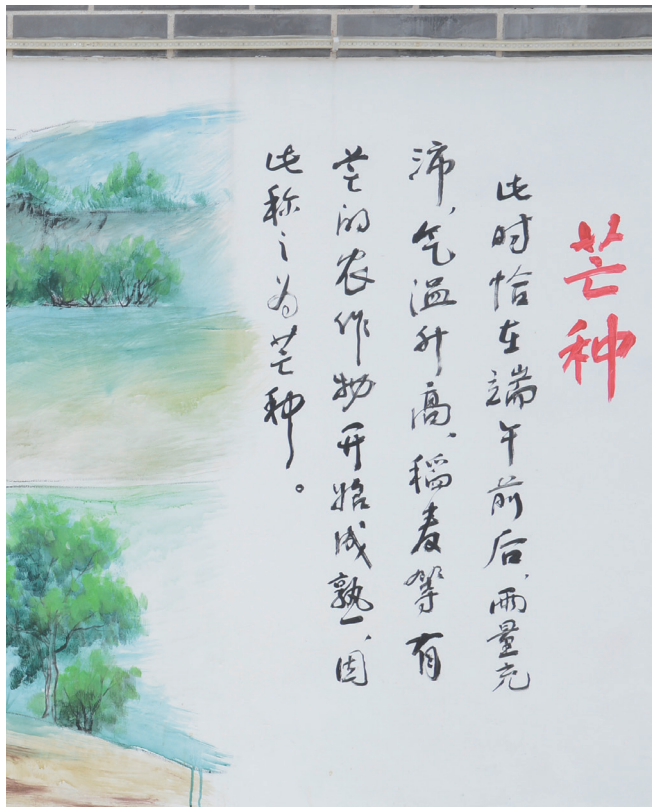 芒种
此时恰在端午前后,雨量充
沛,气温升高、稻麦等有
芒的农作物开始成熟,因
此称之为芒种。